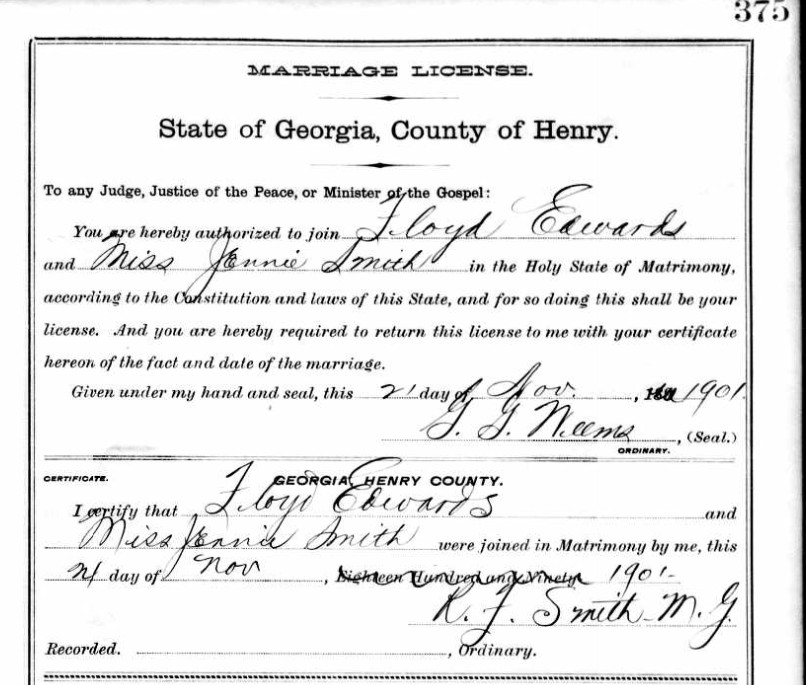 375
MARRIAGE LICENSE.
State of Georgia, County of Henry.
To any Judge, Justice of the Peace, or Minister of the Gospel:
You are hereby authorized to join Floyd Edwards
and Miss Jennie Smith in the Holy State of Matrimony,
according to the Constitution and laws of this State, and for so doing this shall be your
license. And you are hereby required to return this license to me with your certificate
hereon of the fact and date of the marriage.
Given under my hand and seal, this 21 day of Nov. , 1901.
G. G. Weems , (Seal.)
ORDINARY.
CERTIFICATE. GEORGIA, HENRY COUNTY.
I certify that Floyd Edwards and
Miss Jennie Smith were joined in Matrimony by me, this
21 day of Nov , Eighteen Hundred and Ninety 1901-
R. F. Smith M. G.
Recorded. , Ordinary.